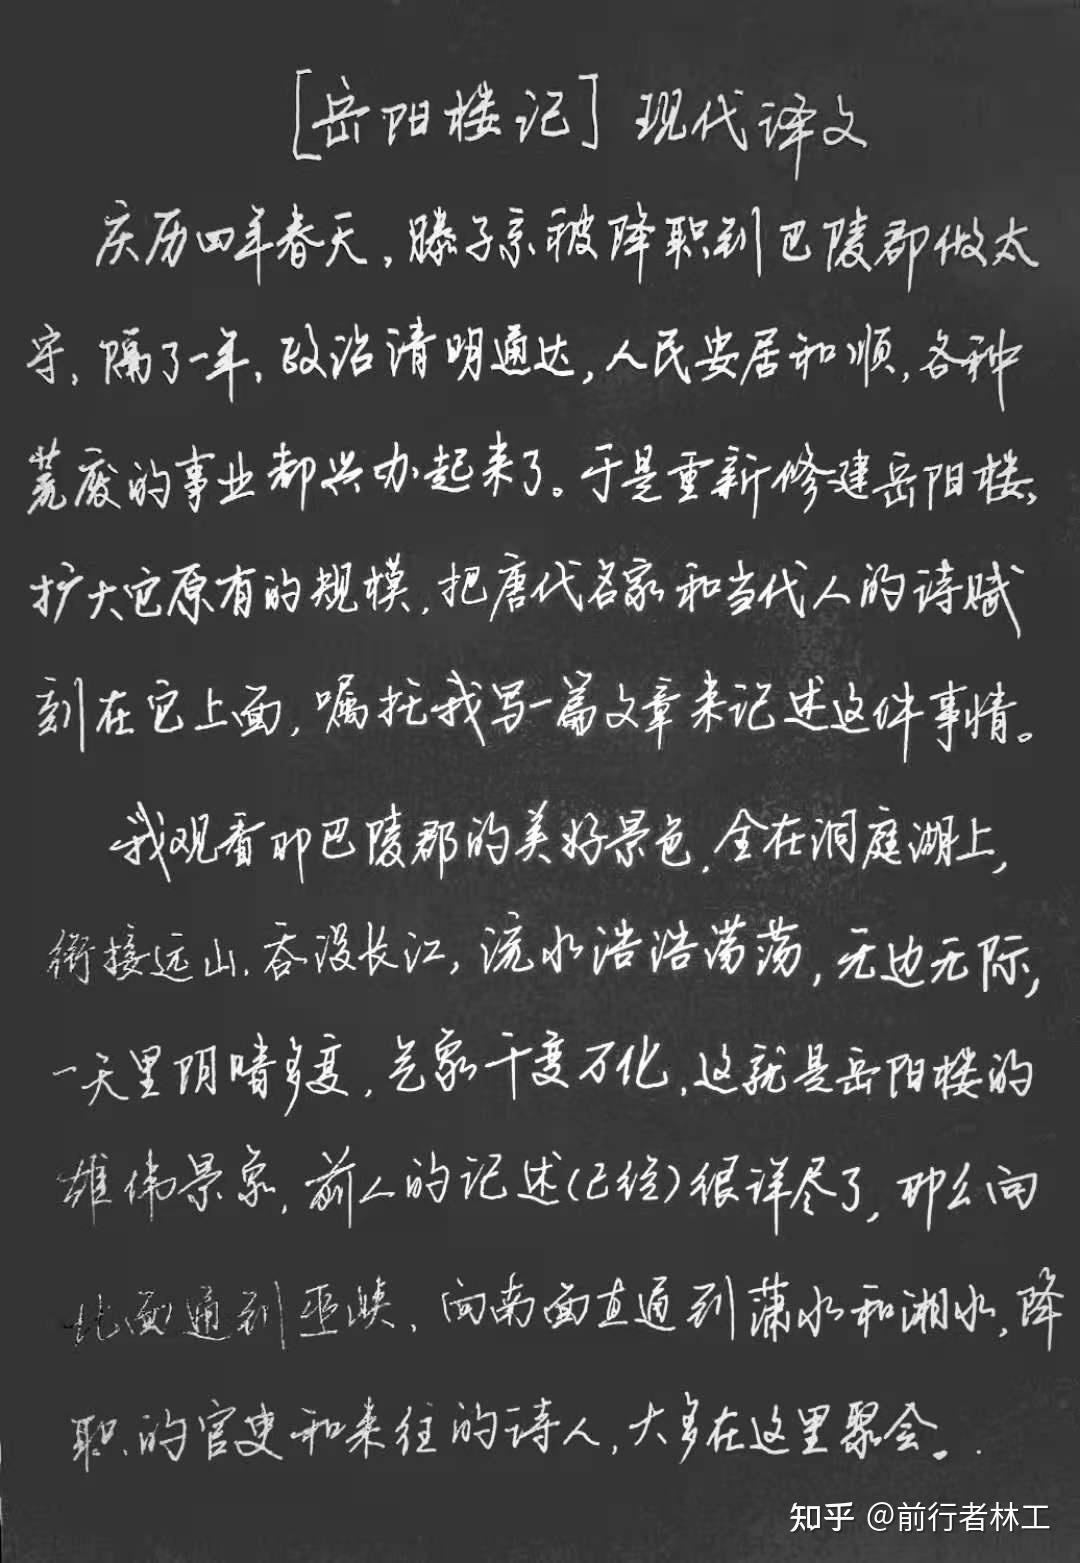 [岳阳楼记]现代译文
庆历四年春天,滕子京被降职到巴陵郡做太
守,隔了一年,政治清明通达,人民安居和顺,各种
荒废的事业都兴办起来了。于是重新修建岳阳楼,
扩大它原有的规模,把唐代名家和当代人的诗赋
刻在它上面,嘱托我写一篇文章来记述这件事情。
我观看那巴陵郡的美好景色,全在洞庭湖上,
衔接远山,吞没长江,流水浩浩荡荡,无边无际,
一天里阴晴多变,气象千变万化,这就是岳阳楼的
雄伟景象,前人的记述(已经)很详尽了,那么向
北面通到巫峡,向南面直通到潇水和湘水,降
职的官吏和来往的诗人,大多在这里聚会。
知乎 @前行者林工